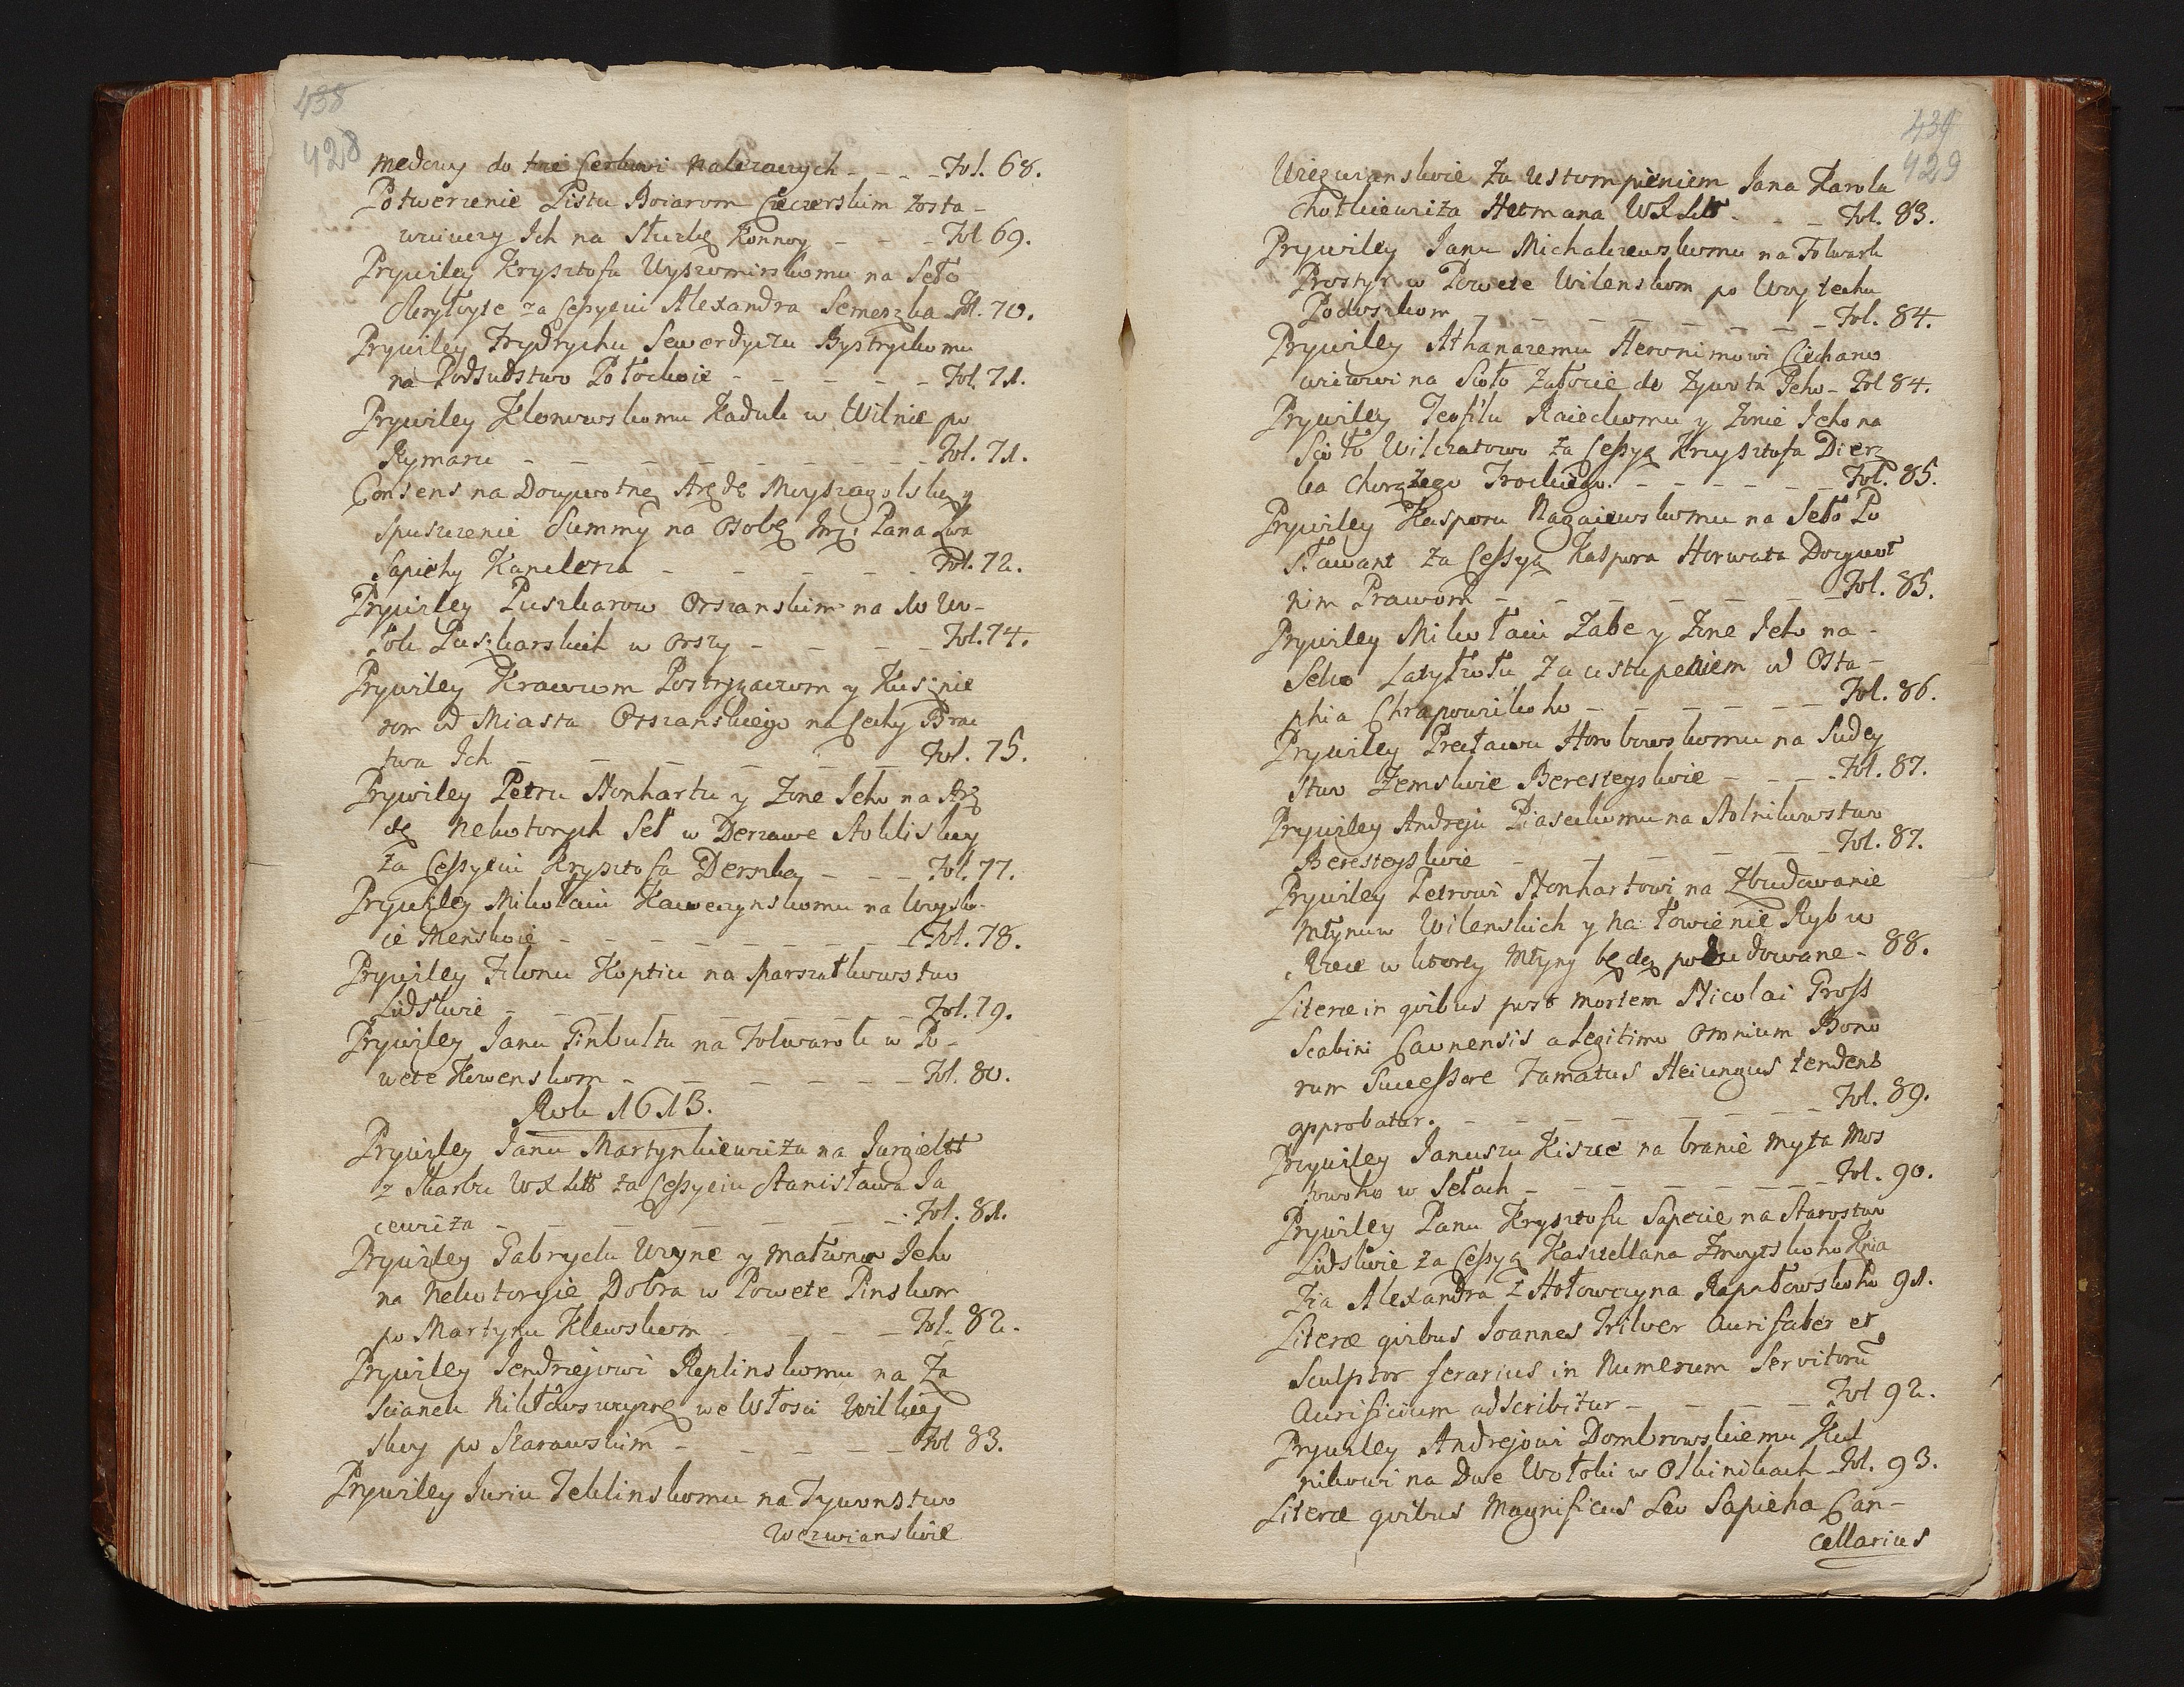 438
428
medowy do trie Cerkwi należacych - - - Fol. 68.
Potwerzenie Listu Boiarom Czeczerskim zosta-
wuiuczy Ich na Służbę Konnoy - - - Fol 69.
Prywiley Krysztofu Wyszomirskomu na Seło
za Cessyeiu Alexandra Semeszka Fol. 70.
Prywiley Frydrychu Sewerdyczu Bystryckomu
na Podsudstwo Połockoie - - - - - Fol. 71.
Prywiley Klonowskomu Kaduk w Wilnie po
Rymaru - - - - - - - - Fol. 71.
Consens na Dożywotnę Arędę Moyszagolskę y
Spuszczenie Summy na Osobę Jmę. Pana Lwa
Sapiehy Kanclerza - - - - - Fol. 72.
Prywiley Puszkarow Orszanskim na 10 Wo-
łok Puszkarskich w Orszy - - - - Fol. 74.
Prywiley Krawcom Postryhaczom y Kusznie
rom od Miasta Orszanskiego na Cechy Brac
twa Ich - - - - - - Fol. 75.
Prywiley Petru Nonhartu y Żone Jeho na Arę
dę Nekotorych Seł w Derzawe Stokliskoy
za Cessyeiu Krysztofa Derszkay - - - Fol. 77.
Prywiley Mikołaiu Kaweczynskomu na Woysk-
ie Menskoie - - - - - - - - Fol. 78.
Prywiley Filonu Koptiu na Marszałkowstwo
Lidskoie - - - - - - - - Fol. 79.
Prywiley Janu Pinbultu na Folwarok w Po-
wete Kowenskom - - - - - - Fol. 80.
Rok 1613.
Prywiley Janu Martynkiewicza na Jurgielt
z Skarbu WX Litt za Cessyeiu Stanisława Ja
cewicza - - - - - - - Fol. 81.
Prywiley Gabryelu Woyne y małżonce Jeho
na Nekotoryie Dobra w Powete Pinskom
po Martynu Klewskom - - - - Fol. 82.
Prywiley Jendrzejowi Replinskomu na Za
scianek we Włosci Wilkiey
skoy po Skarawskim - - - - - Fol 83.
Prywiley Juriu Teklinskomu na Tywonstwo
Wezwianskoie
439
429
Wiezwianskoie za Ustompieniem Jana Karola
Chotkiewicza Hetmana WX Litt - - - Fol. 83.
Prywiley Janu Michałzewskomu na Folwark
Prostyr w Powete Wilenskom po Woytechu
Podwszkom - - - - - - - - Fol. 84.
Prywiley Athanazemu Heronimowi Ciechano
wiczowi na Sioło Załozie do Żywota Jeho - Fol 84.
Prywiley Teofilu Raieckomu y Żonie Jeho na
Sioło Wilczatowo za Cessyą Krzysztofa Dierz
ka Chorążego Trockiego - - - - - - Fol. 85.
Prywiley Kasporu Nagaiewskomu na Seło Po
sławant za Cessyą Kaspora Horwata Dożywot
nim Prawom - - - - - - - - Fol. 85.
Prywiley Mikołaiu Zabe y Żone Jeho na-
Selco Łatyhołu za ustupeniem od Osta-
phia Chrapowickoho - - - - - - Fol. 86.
Prywiley Precławu Horbowskomu na Sudey
stwo Zemskoie Beresteyskoie - - - - Fol. 87.
Prywiley Andreju Piaseckomu na Stolnikowstwo
Beresteyskoie - - - - - - - Fol. 87.
Prywiley Petrowi Nonhartowi na Zbudowanie
Młynuw Wilenskich y na łowienie Ryb w
Rzece w ktorey Młyny będą pobudowane - 88.
Literæ in qvibus post mortem Nicolai Gross
Scabini Caunensis a Legitimo Omnium Bono
rum Successore Famatus Heiungus tendens
approbatur. - - - - - - - - Fol. 89.
Prywiley Januszu Kiszce na branie Myta Mos
towoho w Sełach - - - - - - - - Fol. 90.
Prywiley Panu Krysztofu Sapezie na Starostwo
Lidskoie za Cessyą Kasztellana Zmoytskoho Knia
zia Alexandra z Hołowczyna Ropałowskoho 91.
Literæ qvibus Joannes Trilner Aurifaber et
Sculptor ferarius in Numerum Servitorũ
Aurificium adscribitur - - - - - Fol 92.
Prywiley Andrejowi Dombrowskiemu Kuch
nikowi na Dwe Wołoki w Olkinikach Fol. 93.
Literæ qvibus Magnificus Leo Sapieha Can-
cellarius